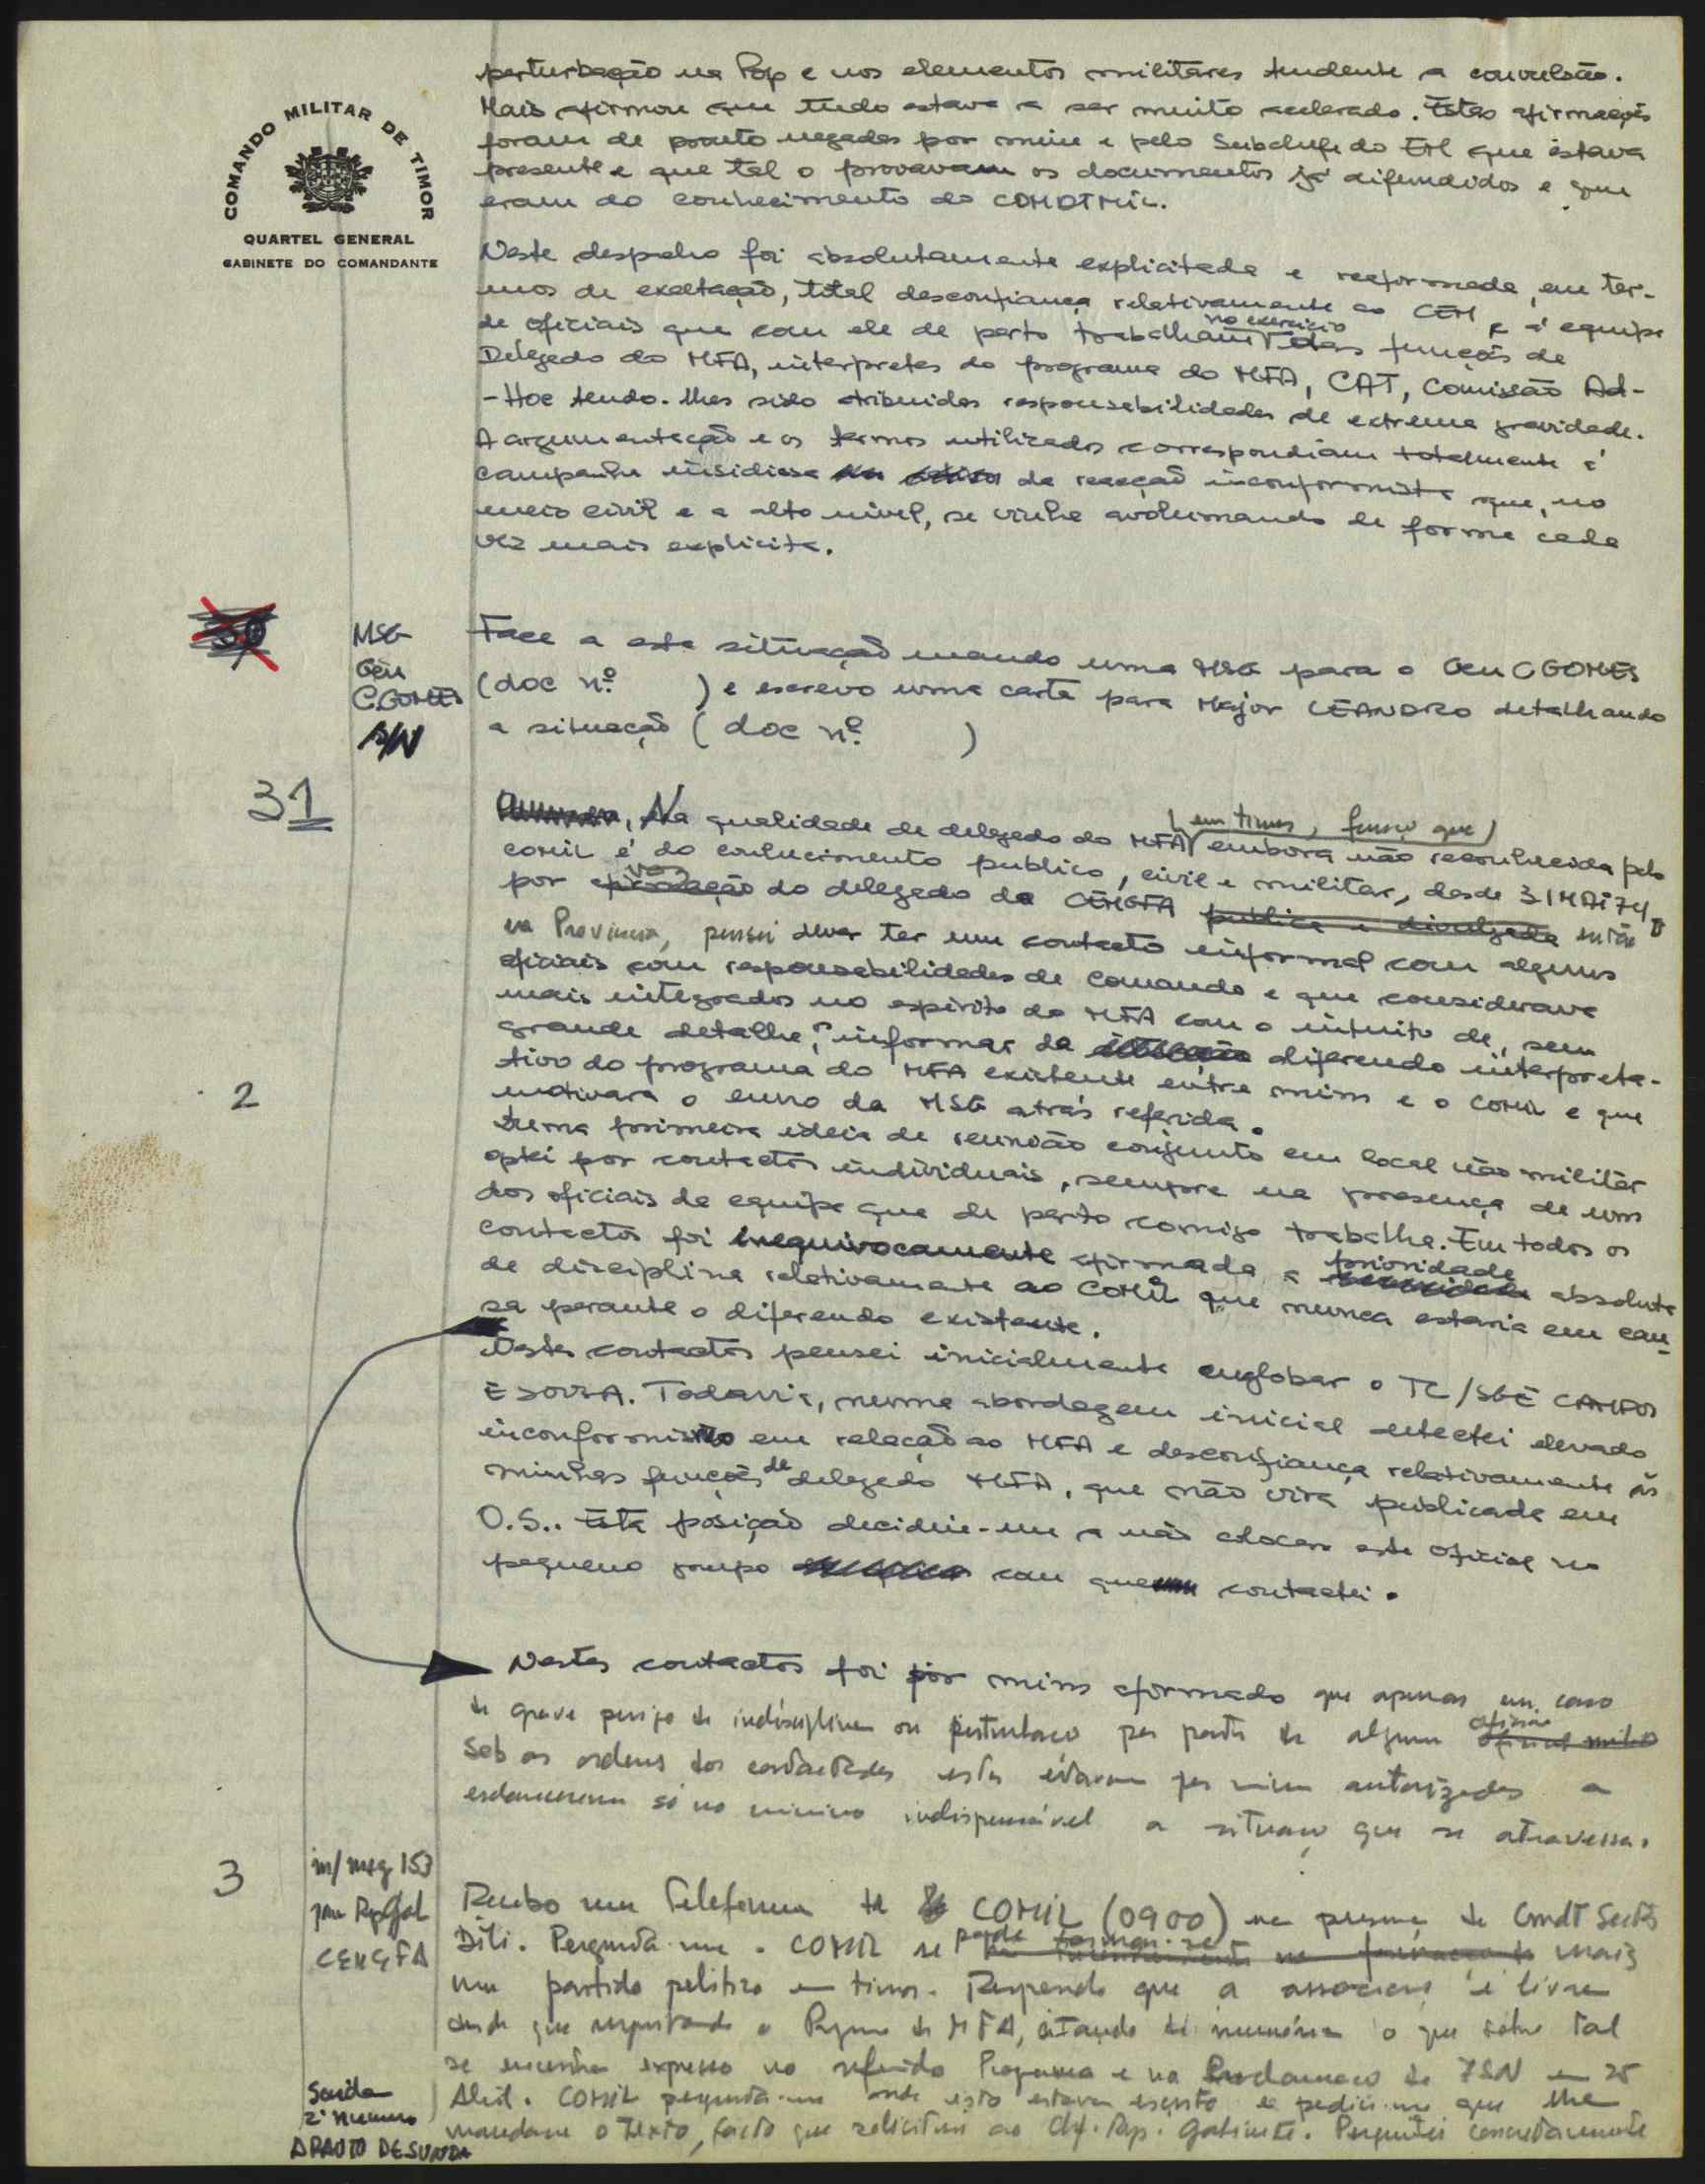 COMANDO MILITAR DE TIMOR
QUARTEL GENERAL
GABINETE DO COMANDANTE
perturbação na Pop e nos elementos militares tendente a convulsão.
Mais afirmou que tudo estava a ser muito acelerado. Estas afirmações
foram de pronto negadas por mim e pelo Subchefe do EM que estava
presente e que tal o provavam os documentos já difundidos e que
eram do conhecimento do COMDTMIL.
Neste despacho foi absolutamente explicitada e reafirmada, em ter-
mos de exaltação, total desconfiança relativamente ao CEM e à equipe
de oficiais que com ele de perto trabalham no exercício das funções de
Delegado do MFA, interpretes do programa do MFA, CAT, Comissão Ad-
-Hoc tendo-lhes sido atribuidas responsabilidades de extrema gravidade.
A argumentação e os termos utilizados correspondiam totalmente à
campanha insidiosa da reacção inconformista que, no
meio civil e a alto nível, se vinha avolumando de forma cada
vez mais explicita.
30
MSG
Gen
C.GOMES
S/N
Face a esta situação mando uma MSG para o Gen C GOMES
(doc nº ) e escrevo uma carta para Major LEANDRO detalhando
a situação (doc nº )
31
Na qualidade de delegado do MFA (em timor, função que) embora não reconhecida pelo
COMIL é do conhecimento publico, civil e militar, desde 31MAI74
por do delegado do CEMGFA publica e divulgada então
na Provincia, pensei dever ter um contacto informal com alguns
oficiais com responsabilidades de Comando e que considerava
mais integrados no espirito do MFA com o intuito de, sem
grande detalhe, informar da diferendo interpreta-
tivo do programa do MFA existente entre mim e o COMIL e que
motivara o envio da MSG atrás referida.
2
Numa primeira ideia de reunião conjunta em local não militar
optei por contactos individuais, sempre na presença de um
dos oficiais da equipe que de perto comigo trabalha. Em todos os
contactos foi inequivocamente afirmada a prioridade absoluta
de disciplina relativamente ao COMIL que nunca estaria em cau-
sa perante o diferendo existente.
Nestes contactos pensei inicialmente englobar o TC/SGE CAMPOS
E SOUSA. Todavia, numa abordagem inicial detectei elevado
inconformismo em relação ao MFA e desconfiança relativamente às
minhas funções de delegado MFA, que não vira publicada em
O.S.. Esta posição decidiu-me a não colocar este oficial no
pequeno grupo com quem contactei.
Nestes contactos foi por mim afirmado que apenas em caso
de grave perigo de indisciplina ou perturbação por parte de algum
sob as ordens dos contactados estes estavam por mim autorizados a
esclarecerem só no minimo indispensável a situação que se atravessa.
3
m/ msg 153
para RepGab
CEMGFA
Recebo um Telefonema do COMIL (0900) na presença do Cmdt Sector
Dili. Pergunta-me o COMIL se pode formar-se mais
um partido politico em timor. Respondo que a associação é livre
desde que respeitando o Programa do MFA, citando de memória o que sobre tal
se encontra expresso no referido Programa e na Proclamação da JSN em 25
Abril. COMIL pergunta-me onde isto estava escrito e pediu-me que lhe
mandasse o texto, facto que solicitei ao Chf. Rep. Gabinete. Perguntei concretamente
Saida
2º Numero
ARAUTO DE SUNDA